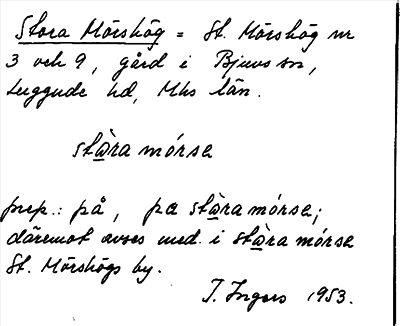 Stora Mörshög = St. Mörshög nr
3 och 9, gård i Bjuvs sn,
Luggude hd, Mhs län.
stàra mórsa
prep.: på, pa stàra mórsa;
däremot avses med i stàra mórsa
St. Mörshögs by.
T. Ingers 1953.